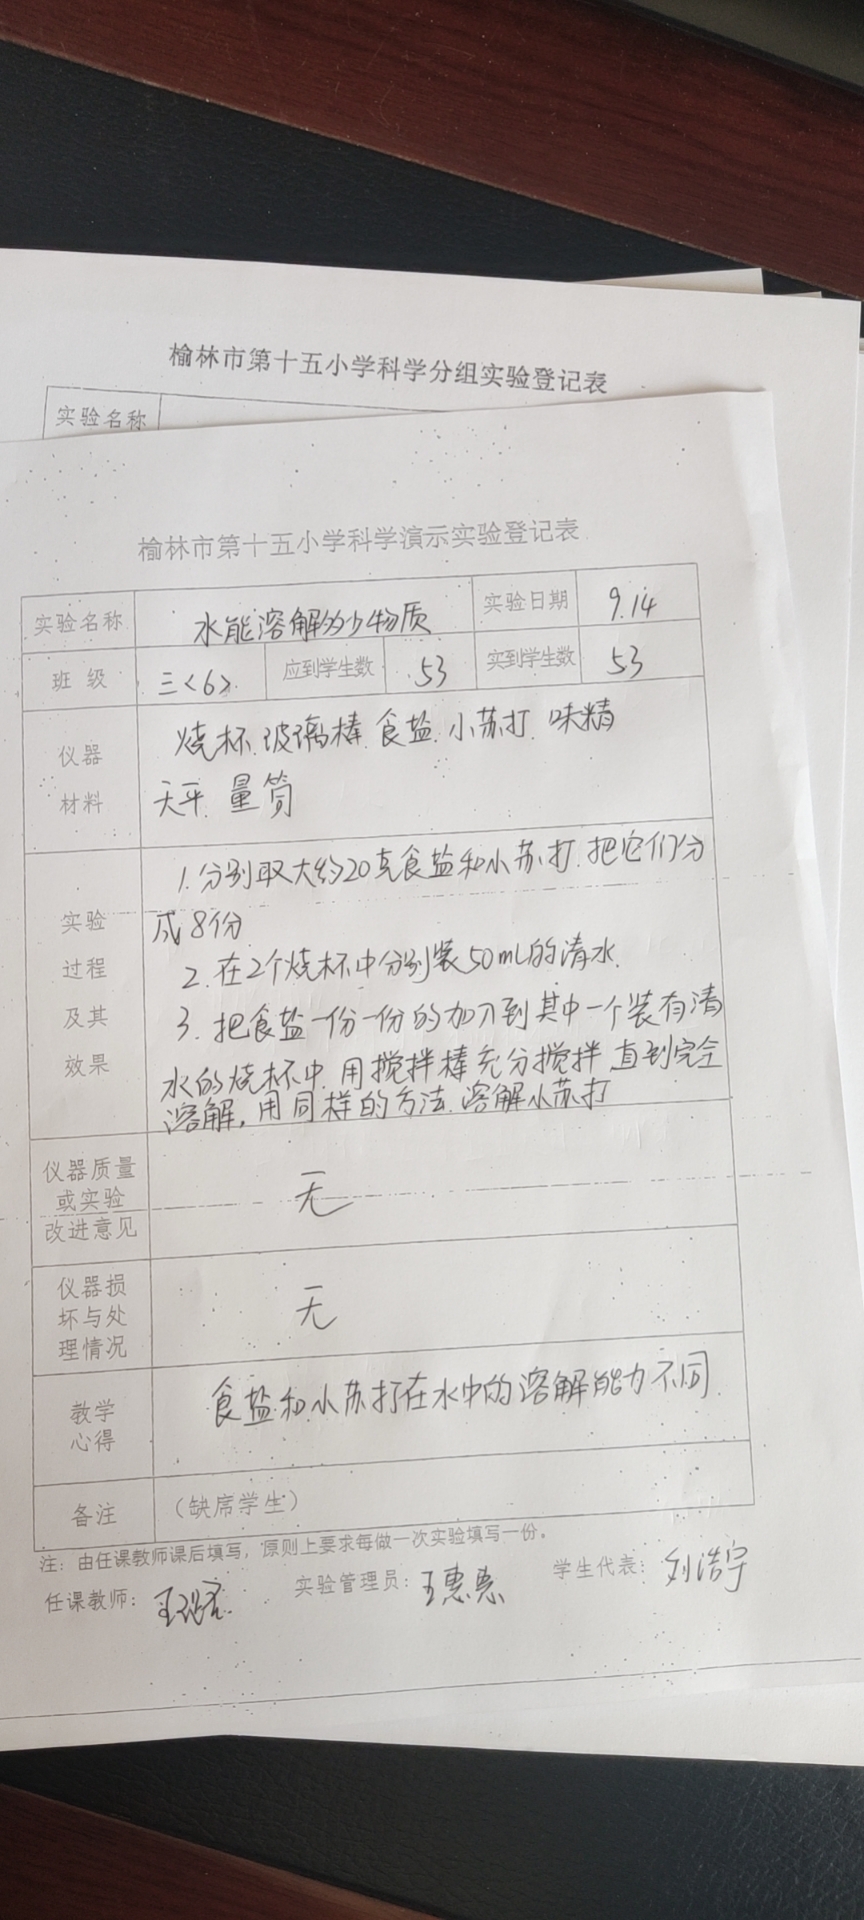 榆林市第十五小学科学分组实验登记表
实验名称
榆林市第十五小学科学演示实验登记表
实验名称 水能溶解多少物质 实验日期 9.14
班 级 三<6> 应到学生数 53 实到学生数 53
仪器
材料
烧杯.玻璃棒.食盐.小苏打.味精
天平.量筒
实验
过程
及其
效果
1.分别取大约20克食盐和小苏打.把它们分
成8份
2.在2个烧杯中分别装50mL的清水.
3.把食盐一份一份的加入到其中一个装有清
水的烧杯中.用搅拌棒充分搅拌.直到完全
溶解,用同样的方法.溶解小苏打
仪器质量
或实验
改进意见
无
仪器损
坏与处
理情况
无
教学
心得
食盐和小苏打在水中的溶解能力不同.
备注 (缺席学生)
注:由任课教师课后填写,原则上要求每做一次实验填写一份。
任课教师: 实验管理员:王惠惠 学生代表:刘浩宇